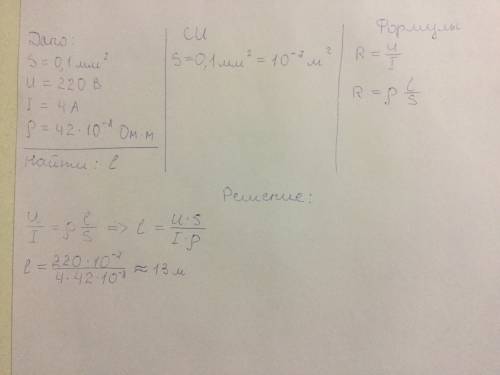 Дано:
S = 0,1 мм²
U = 220 В
I = 4 А
ρ = 42·10⁻⁸ Ом·м
Найти: l
СИ
S = 0,1 мм² = 10⁻⁷ м²
Формулы
R = U/I
R = ρ l/S
Решение:
U/I = ρ l/S => l = U·S/I·ρ
l = 220·10⁻⁷/4·42·10⁻⁸ ≈ 13 м